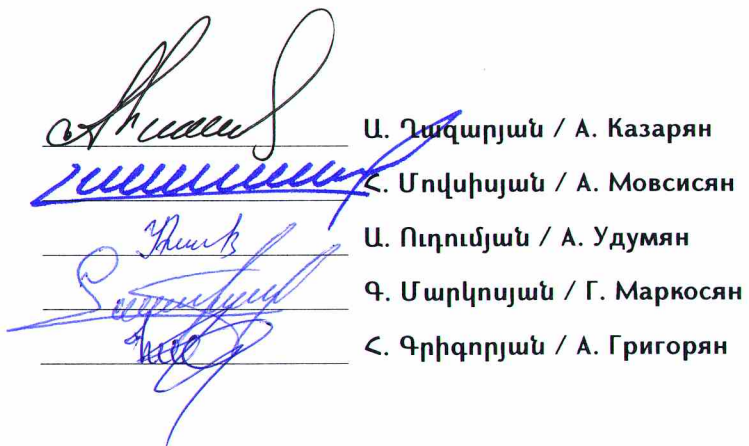 Ա. Ղազարյան / А. Казарян
Հ. Մովսիսյան / А. Мовсисян
Ա. Ուդումյան / А. Удумян
Գ. Մարկոսյան / Г. Маркосян
Հ. Գրիգորյան / А. Григорян